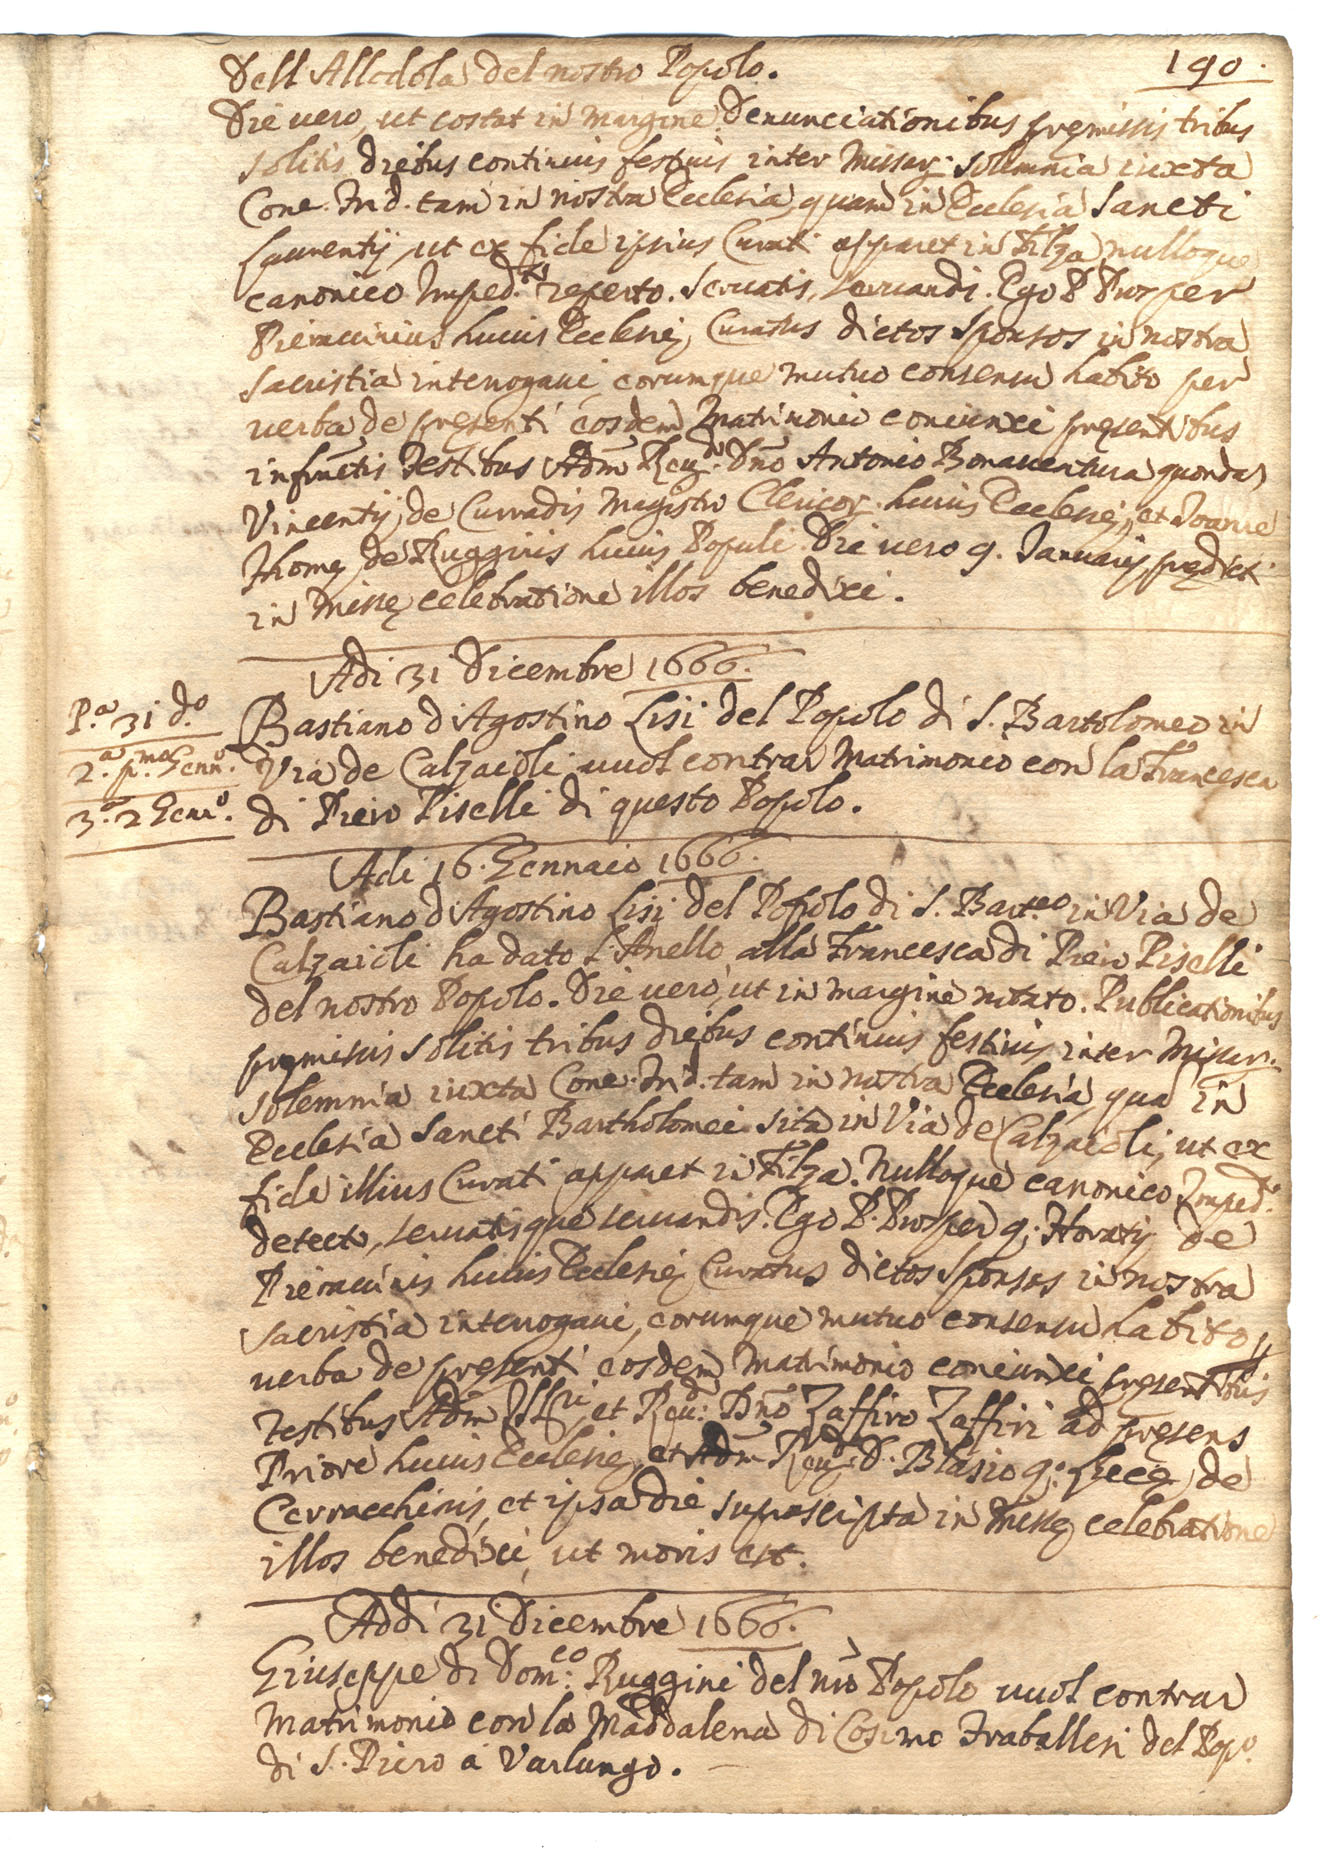 190.
Dell Allodola del nostro Popolo.
Die vero, ut costat in margine Denunciationibus premissis tribus
solitis diebus continuis festivis inter Missar: solemnia iuxta
Conc. Trid. tam in nostra Ecclesia, quam in Ecclesia Sancti
Laurentij, ut ex fide ipsius Curati apparet in Filza nulloque
canonico Imped.to reperto. Servatis, servandi. Ego P. Prosper
Pieraccinius huius Ecclesię Curatus dictos Sponsos in nostra
sacristia interrogavi, eorumque mutuo consensu habito per
verba de pręsenti eosdem Matrimonio coniunxi pręsentibus
infrictis Testibus Adm Reu.do Dño Antonio Bonaventura quondā
Vincentij de Curradis Magistro Clericor. huius Ecclesię, et Joanne
Thomę de Rugginis huius Populi. Die vero 9. Januarij prędicti
in Missę celebratione illos benedixi.
Adi 31 Dicembre 1666.
P.a 31 d.o
2.a p.mo Genn.o
3.a 2 Gen.o
Bastiano d'Agostino Lisi del Popolo di S. Bartolomeo in
Via de Calzaioli vuol contrar Matrimonio con la Francesca
di Piero Piselli di questo Popolo.
Adi 16. Gennaio 1666.
Bastiano d'Agostino Lisi del Popolo di S. Bart.eo in Via de
Calzaioli ha dato l'Anello alla Francesca di Piero Piselli
del nostro Popolo. Die vero, ut in margine notato. Publicationibus
pręmissis solitis tribus diebus continuis festivis inter Missar:
solemnia iuxta Conc. Trid. tam in nostra Ecclesia, qua in
Ecclesia Sancti Bartholomei sita in Via de Calzaioli, ut ex
fide illius Curati apparet in Filza. Nulloque canonico Imped.to
detecto, servatisque servandis. Ego P. Prosper q. Horatij de
Pieraccinis huius Ecclesię Curatus dictos Sponsos in nostra
sacristia interrogavi, eorumque mutuo consensu habito,
verba de pręsenti eosdem Matrimonio coniunxi pręsentibus
Testibus Adm Ill.ri, et Reu.do Dño Zaffiro Zaffiri ad pręsens
Priore huius Ecclesię, et Adm Reu.do D. Blasio q. Lucę de
Cerracchinis, et ipsa die suprascripta in Missę celebratione
illos benedixi, ut moris est.
Addi 31 Dicembre 1666.
Giuseppe di Dom.co Ruggini del nrō Popolo vuol contrar
Matrimonio con la Maddalena di Cosimo Traballesi del Pop.o
di S. Piero a Varlungo.